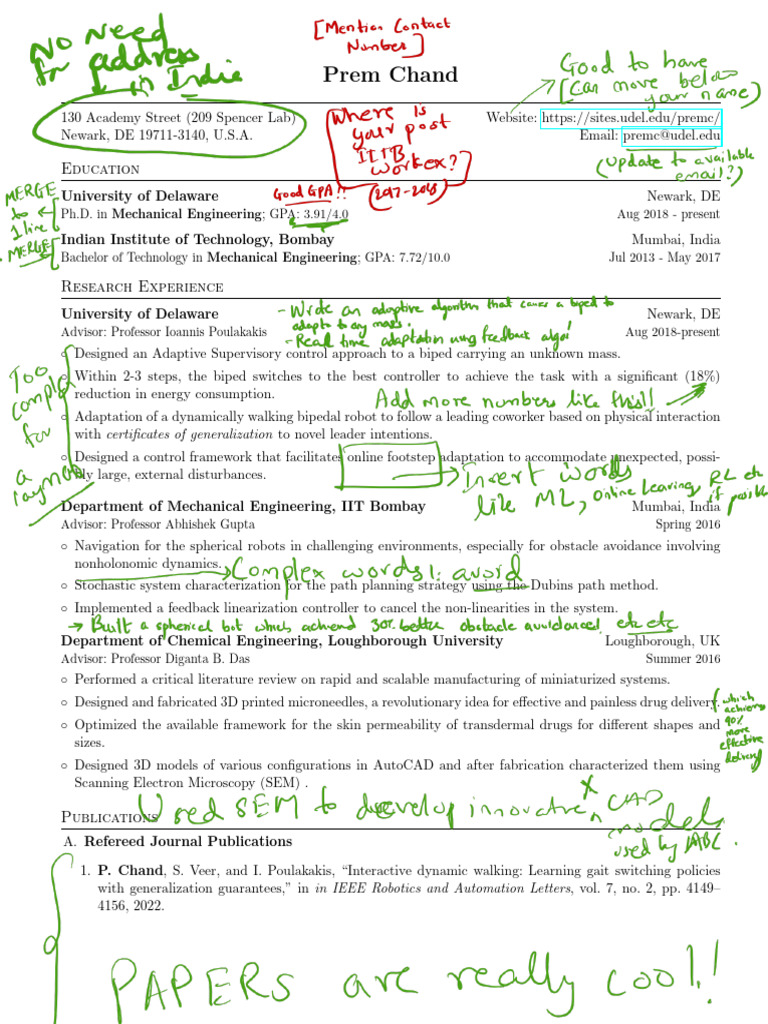 No Need
for address
in India
[Mention Contact
Number]
Prem Chand
Good to have
[Can move below
your name)
130 Academy Street (209 Spencer Lab)
Newark, DE 19711-3140, U.S.A.
Where is
your post
IITB
workex?
(2017-2018)
Website: https://sites.udel.edu/premc/
Email: premc@udel.edu
(Update to available
email?)
Education
MERGE
to
1 line
MERGE
University of Delaware
Good GPA!!
Newark, DE
Ph.D. in Mechanical Engineering; GPA: 3.91/4.0
Aug 2018 - present
Indian Institute of Technology, Bombay
Mumbai, India
Bachelor of Technology in Mechanical Engineering; GPA: 7.72/10.0
Jul 2013 - May 2017
Research Experience
University of Delaware
Newark, DE
- Wrote an adaptive algorithm that causes a biped to
adapt to any mass.
- Real time adaptation using feedback algo!
Advisor: Professor Ioannis Poulakakis
Aug 2018-present
Too
complex
for
a
layman
○ Designed an Adaptive Supervisory control approach to a biped carrying an unknown mass.
○ Within 2-3 steps, the biped switches to the best controller to achieve the task with a significant (18%)
reduction in energy consumption.
Add more numbers like this!!
○ Adaptation of a dynamically walking bipedal robot to follow a leading coworker based on physical interaction
with certificates of generalization to novel leader intentions.
○ Designed a control framework that facilitates online footstep adaptation to accommodate unexpected, possi-
bly large, external disturbances.
Insert words
like ML, online learning, RL etc
if possible
Department of Mechanical Engineering, IIT Bombay
Mumbai, India
Advisor: Professor Abhishek Gupta
Spring 2016
○ Navigation for the spherical robots in challenging environments, especially for obstacle avoidance involving
nonholonomic dynamics.
Complex words!: avoid
○ Stochastic system characterization for the path planning strategy using the Dubins path method.
○ Implemented a feedback linearization controller to cancel the non-linearities in the system.
→ Built a spherical bot which achieved 30% better obstacle avoidance! etc etc
Department of Chemical Engineering, Loughborough University
Loughborough, UK
Advisor: Professor Diganta B. Das
Summer 2016
○ Performed a critical literature review on rapid and scalable manufacturing of miniaturized systems.
○ Designed and fabricated 3D printed microneedles, a revolutionary idea for effective and painless drug delivery.
which
achieves
90%
more
effective
delivery
○ Optimized the available framework for the skin permeability of transdermal drugs for different shapes and
sizes.
○ Designed 3D models of various configurations in AutoCAD and after fabrication characterized them using
Scanning Electron Microscopy (SEM) .
Used SEM to develop innovative x CAD
models
used by ABC.
Publications
A. Refereed Journal Publications
1. P. Chand, S. Veer, and I. Poulakakis, “Interactive dynamic walking: Learning gait switching policies
with generalization guarantees,” in in IEEE Robotics and Automation Letters, vol. 7, no. 2, pp. 4149–
4156, 2022.
PAPERS are really cool!!